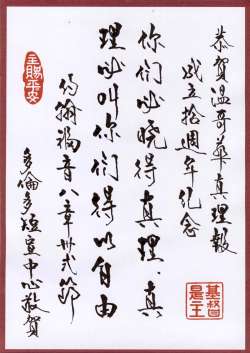 恭賀溫哥華真理報
成立拾週年纪念
你们必晓得真理．真
理必叫你们得以自由
约翰福音八章卅弍節
多倫多短宣中心敬賀
主賜平安
基督
是主